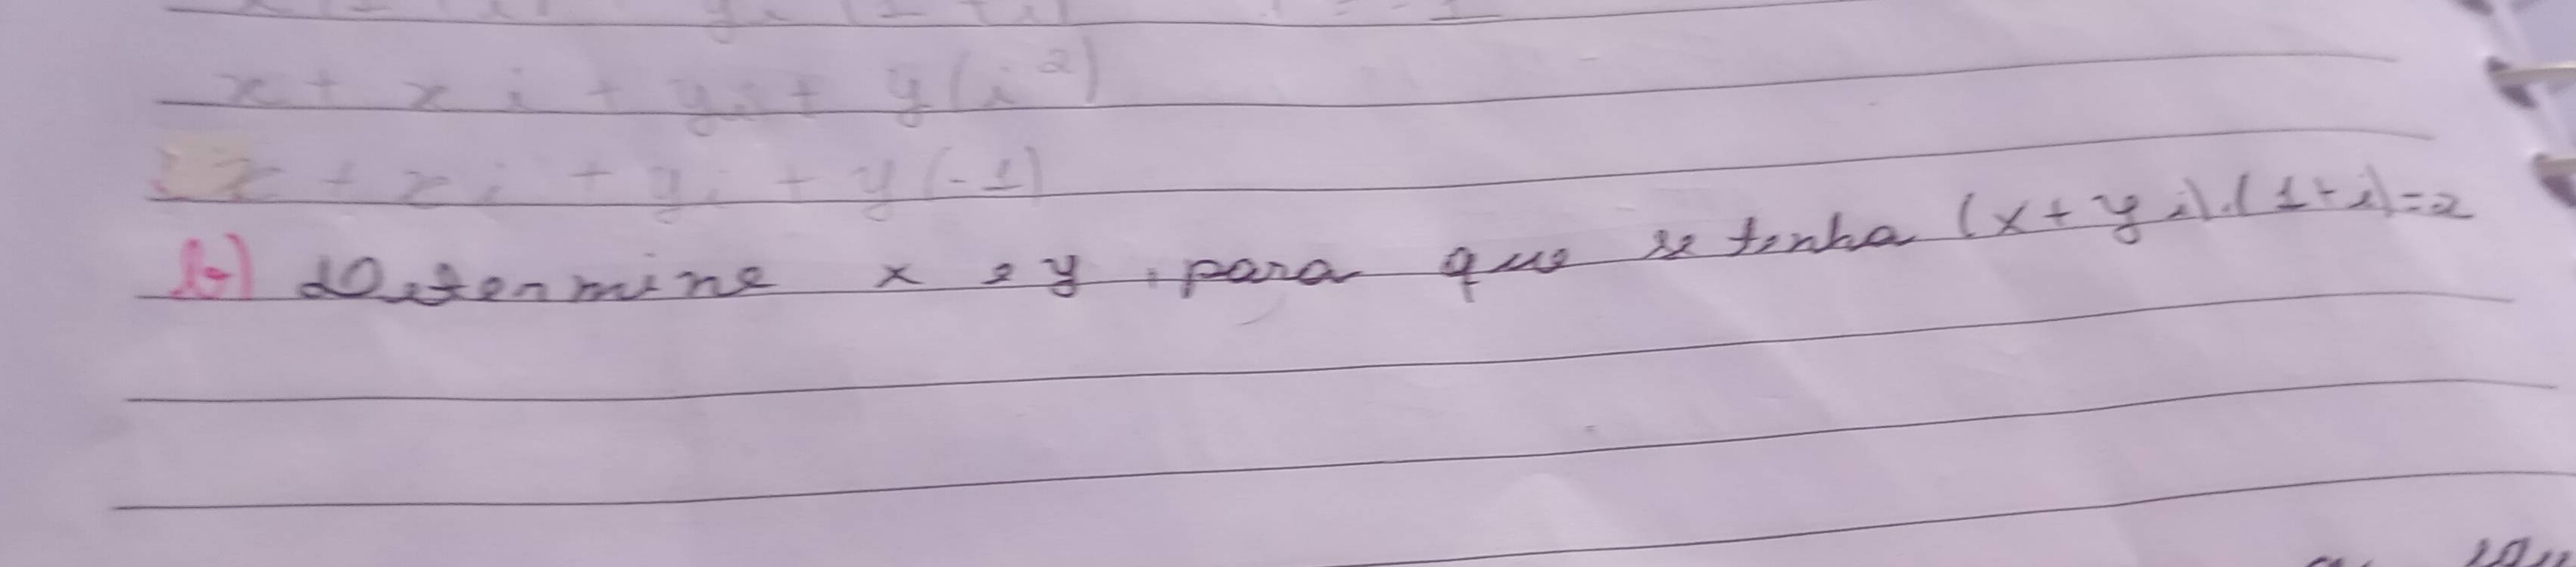 x + x i + y i + y (i²)
x + x i + y i + y (-1)
b) Determine x e y, para que se tenha (x + y i).(1+i)=2